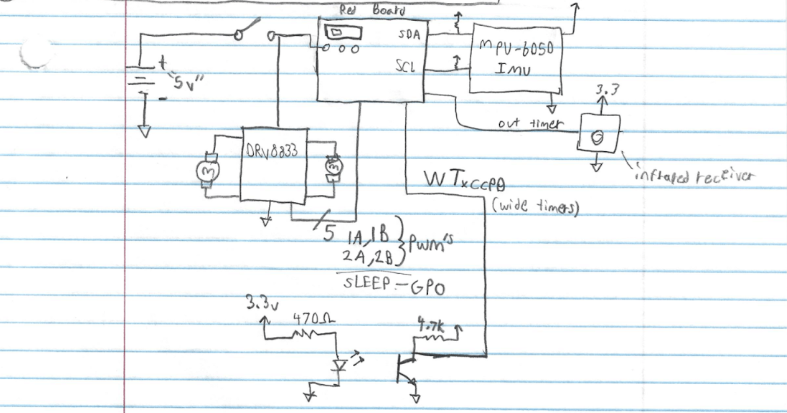 Red Board
SDA
SCL
MPU-6050
IMU
+
"5v"
-
3.3
out timer
infrared receiver
DRV8833
M
M
WTxCCP0
(wide timers)
5
1A, 1B } PWM's
2A, 2B
SLEEP - GPO
3.3v
470Ω
4.7k